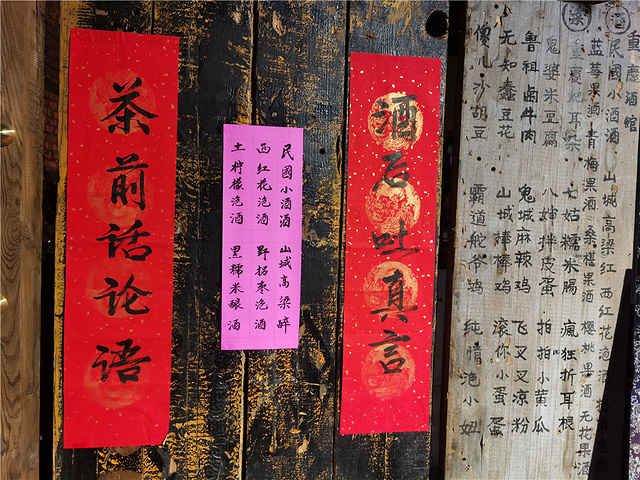 茶前话论语
酒后吐真言
民國小酒酒 山城高梁醉
西红花泡酒 野拐枣泡酒
土柠檬泡酒 黑糯米酿酒
重慶酒馆
民國小酒酒 山城高梁红 西红花泡酒
蓝莓果酒 青梅果酒 桑椹果酒 樱桃果酒 无花果酒
耳朵 七姑糯米肠 疯狂折耳根
鬼婆米豆腐 八婶拌皮蛋 拍拍小黄瓜
鲁祖卤牛肉 鬼城麻辣鸡 飞叉叉凉粉
无知蠢豆花 山城棒棒鸡 滚你小蛋蛋
傻儿沙胡豆 霸道舵爷鸡 纯情泡小妞